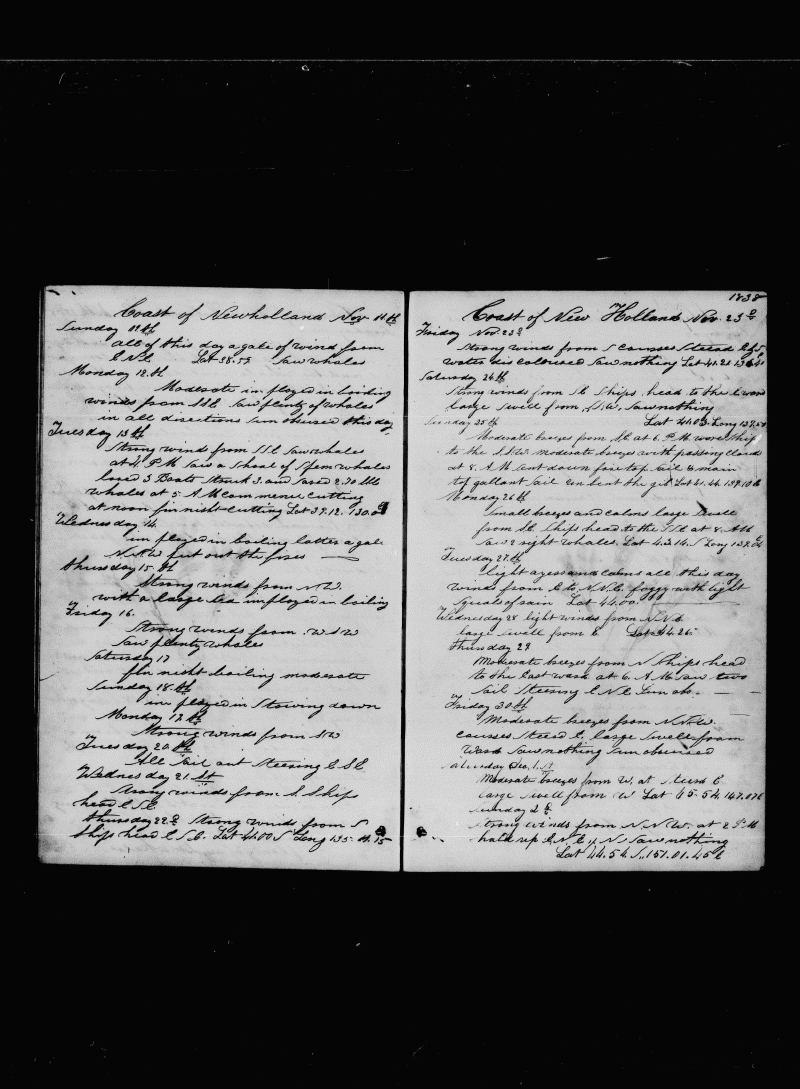 Coast of Newholland Nov 11th
Sunday 11th
all of this day a gale of wind from
E N E. Lat 38.59 Saw whales
Monday 12.th
Moderate imployed in boiling
winds from SSE Saw plenty of whales
in all directions Sun obscured this day
Tuesday 13th
Strong winds from SSE Saw whales
at 4. P M Saw a Shoal of Sperm whales
lowed 3 Boats Struck 3. and Saved 2. 70 bbl
whales at 5. A M Commence Cutting
at noon finnisht Cutting Lat 39.12. 130.0
Wednesday 14.
imployed in boiling latter a gale
N.N.W put out the fires
thursday 15.th
Strong winds from N W.
with a large Sea imployed in boiling
Friday 16.
Strong winds from W S W
Saw plenty whales
Saturday 17
finnisht boiling moderate
Sunday 18.th
imployed in Stowing down
Monday 19.th
Strong winds from S W
Tuesday 20.th
All Sail out Steering E S E
Wednesday 21 St
Strong winds from S. Ships
head E S E.
thursday 22.d Strong winds from S
Ships head E S E. Lat 41.00 S Long 135.
1838
Coast of New Holland Nov. 23d
Friday Nov. 23d
Strong winds from S Courses Steerd
water discoloured Saw nothing Lat 41.21
Saturday 24th
Strong winds from S E Ships head to the E ward
large Swell from S.W. Saw nothing
Lat 41.03. Long 137.50
Sunday 25th
Moderate breezes from S E at 6. P M wore Ship
to the S.S.W. moderate breezes with passing Clouds
at 8. A M Sent down fore top Sail & main
top gallant Sail unbent the gib Lat 41.44. 139.10 E
Monday 26th
Small breezes and calms large Swell
from S E Ships head to the SSE at 8. AM
Saw 2 right whales. Lat 43.14. S Long 139.
Tuesday 27.th
light ayes and Calms all this day
winds from E to N.N.E. foggy with light
Squals of rain Lat 44.00.
Wednesday 28 light winds from N N E
large Swell from E Lat 44.26
thursday 29
Moderate breezes from N Ships head
to the East ward at 6. A M Saw two
Sail Steering E N E
Friday 30th
Moderate breezes from N.N.W.
Courses Steerd E, large Swell from
Ward Saw nothing Sun obscured
Saturday Dec. 1.st
Moderate breezes from W. at Steerd E
large Swell from W Lat 45.54. 147.07 E
Sunday 2d
Strong winds from N.N.W. at 2 P. M
hald up E.N.E y N Saw nothing
Lat 44.54. S. 151.01.45 E